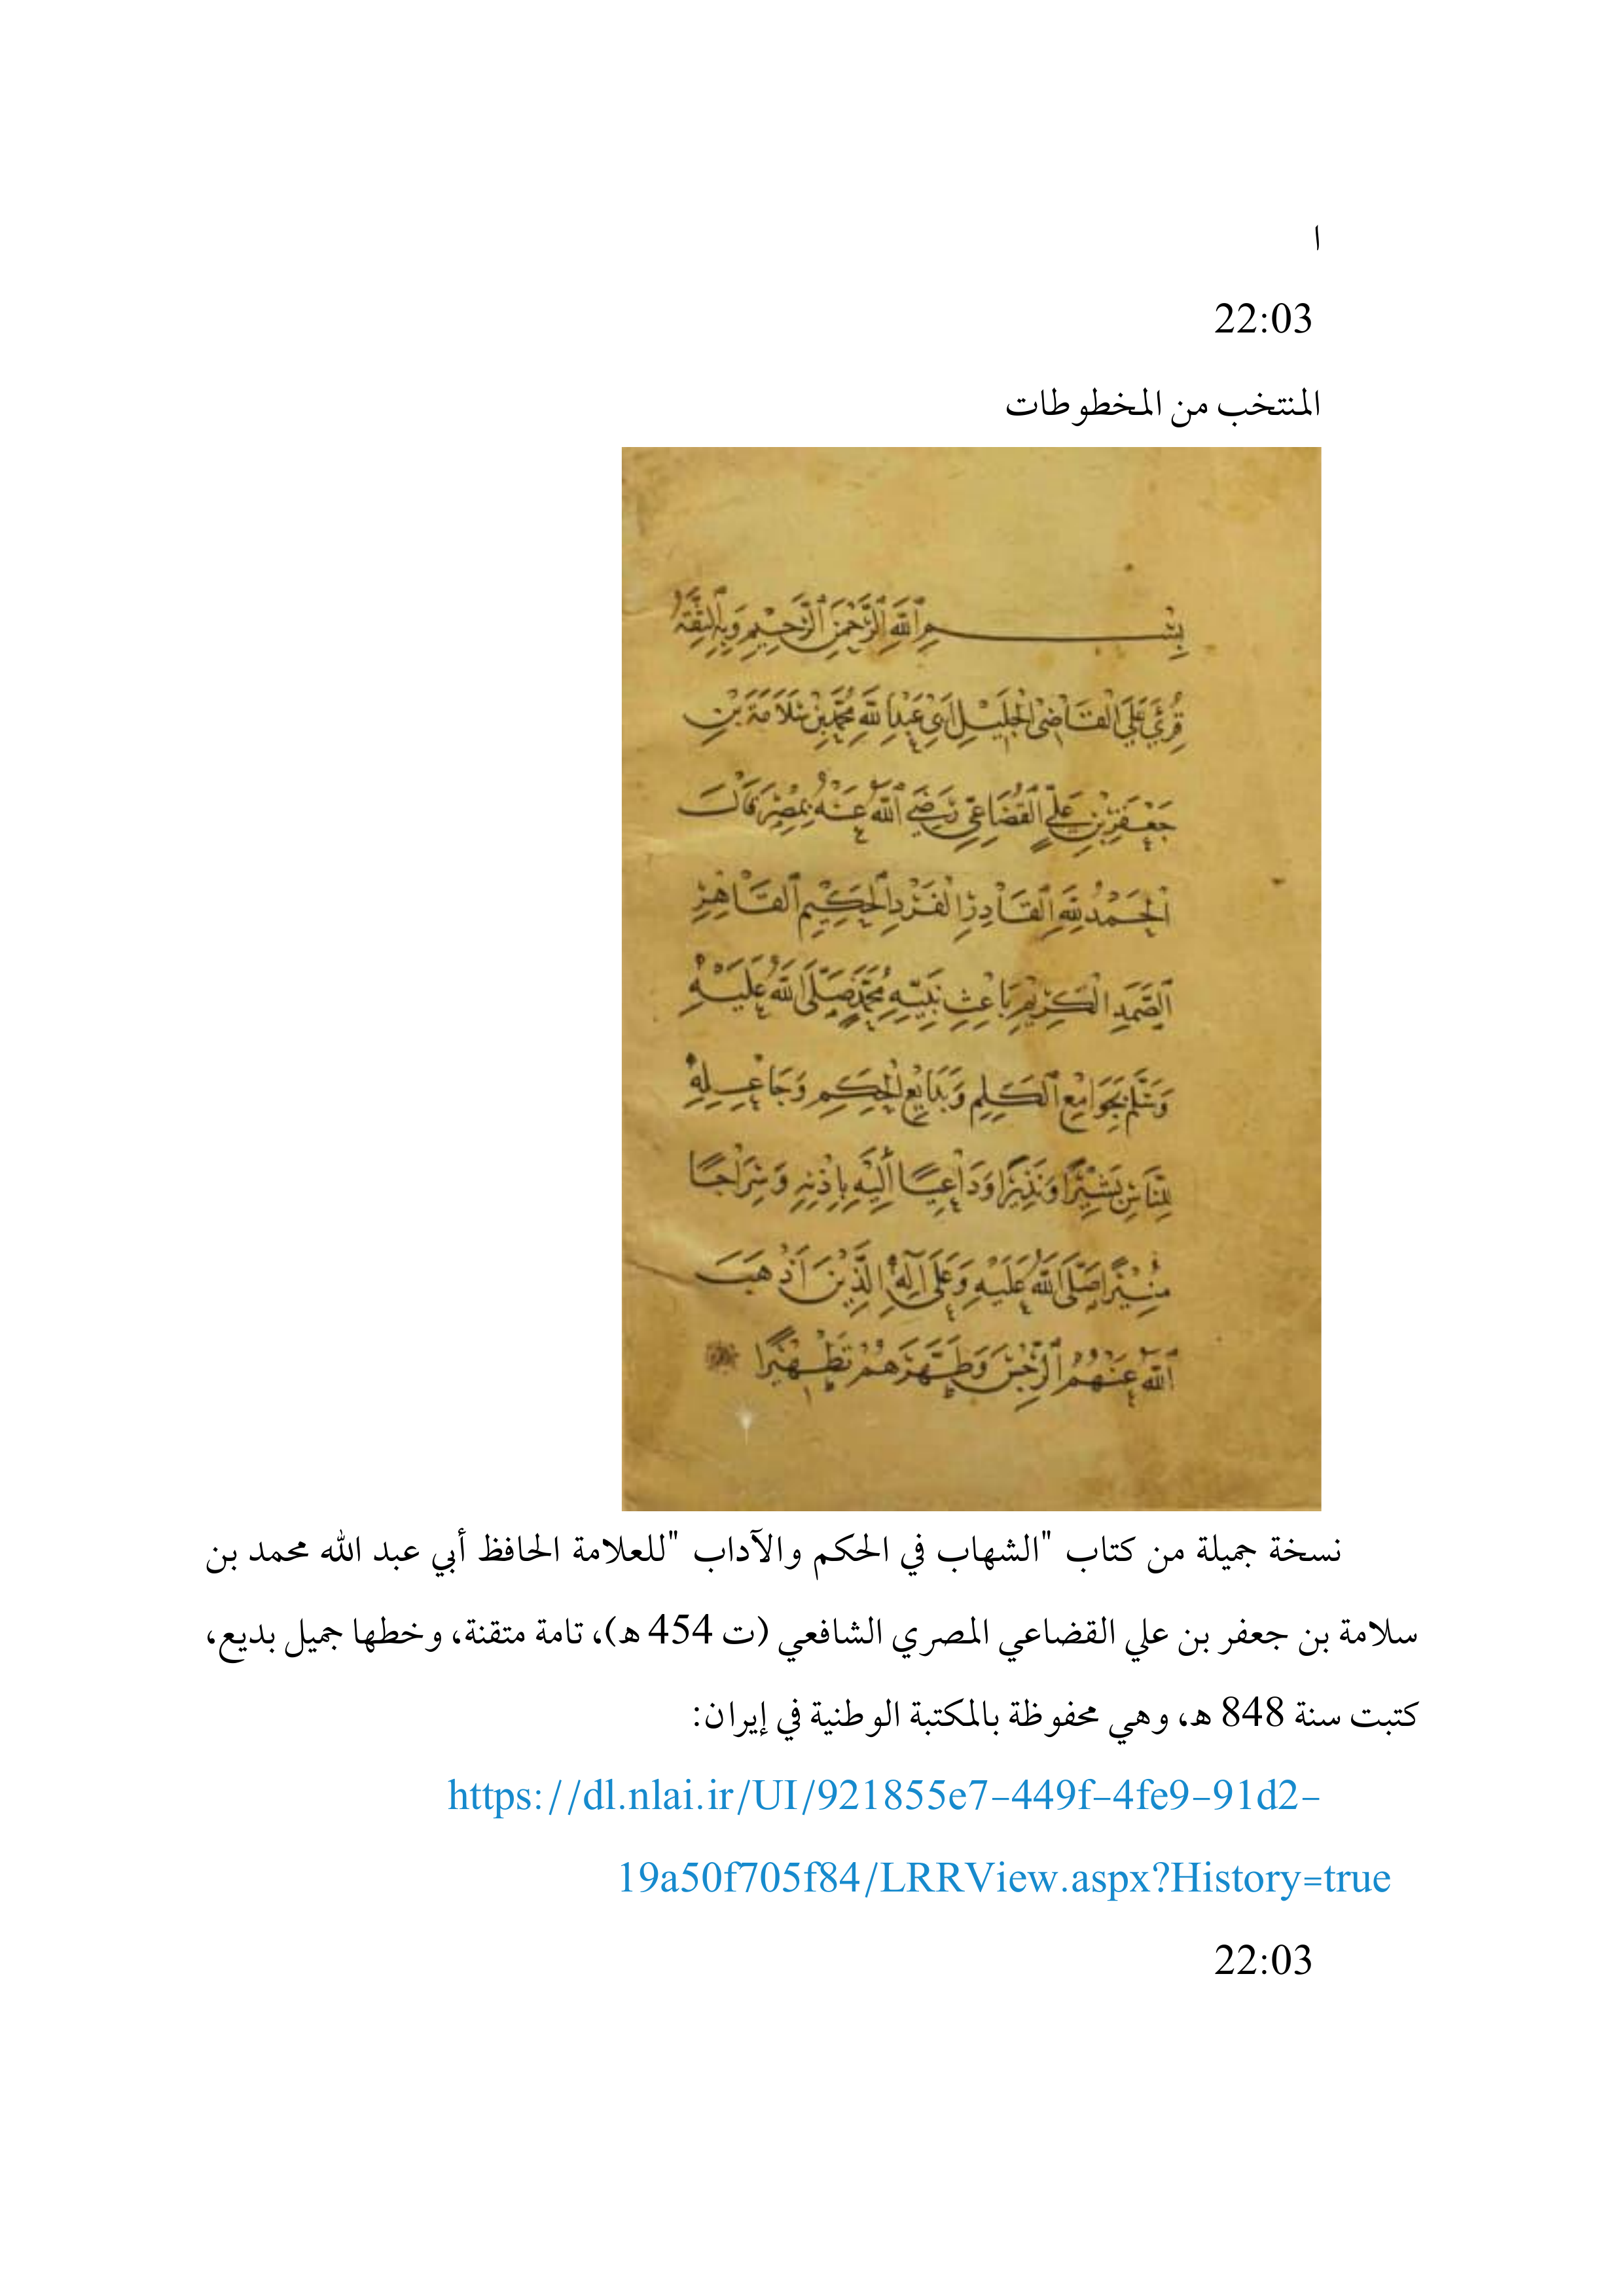 ا
22:03
المنتخب من المخطوطات
بِسْمِ ٱللَّهِ ٱلرَّحْمَنِ ٱلرَّحِيْمِ وَبِهِ ٱلثِّقَةُ
قُرِئَ عَلَى ٱلْقَاضِى ٱلْجَلِيْلِ اَبِى عَبْدِ ٱللَّهِ مُحَمَّدِ بْنِ سَلَامَةَ بْنِ
جَعْفَرِ بْنِ عَلِيٍّ ٱلْقُضَاعِيِّ رَضِيَ ٱللَّهُ عَنْهُ بِمِصْرَ قَالَ
اَلْحَمْدُ لِلَّهِ ٱلْقَادِرِ ٱلْفَرْدِ ٱلْحَكِيْمِ ٱلْقَاهِرِ
ٱلصَّمَدِ ٱلْكَرِيْمِ بَاعِثِ نَبِيِّهِ مُحَمَّدٍ صَلَّى ٱللَّهُ عَلَيْهِ
وَسَلَّمَ بِجَوَامِعِ ٱلْكَلِمِ وَبَدَايِعِ ٱلْحِكَمِ وَجَاعِلِهِ
لِلنَّاسِ بَشِيْرًا وَنَذِيْرًا وَدَاعِيًا أِلَيْهِ بِاِذْنِهِ وَسِرَاجًا
مُنِيْرًا صَلَّى ٱللَّهُ عَلَيْهِ وَعَلَى آلِهِ الَّذِيْنَ اَذْهَبَ
ٱللَّهُ عَنْهُمُ ٱلرِّجْسَ وَطَهَّرَهُمْ تَطْهِيْرًا
نسخة جميلة من كتاب "الشهاب في الحكم والآداب "للعلامة الحافظ أبي عبد الله محمد بن
سلامة بن جعفر بن علي القضاعي المصري الشافعي (ت 454 ه)، تامة متقنة، وخطها جميل بديع،
كتبت سنة 848 ه، وهي محفوظة بالمكتبة الوطنية في إيران:
https://dl.nlai.ir/UI/921855e7-449f-4fe9-91d2-
19a50f705f84/LRRView.aspx?History=true
22:03